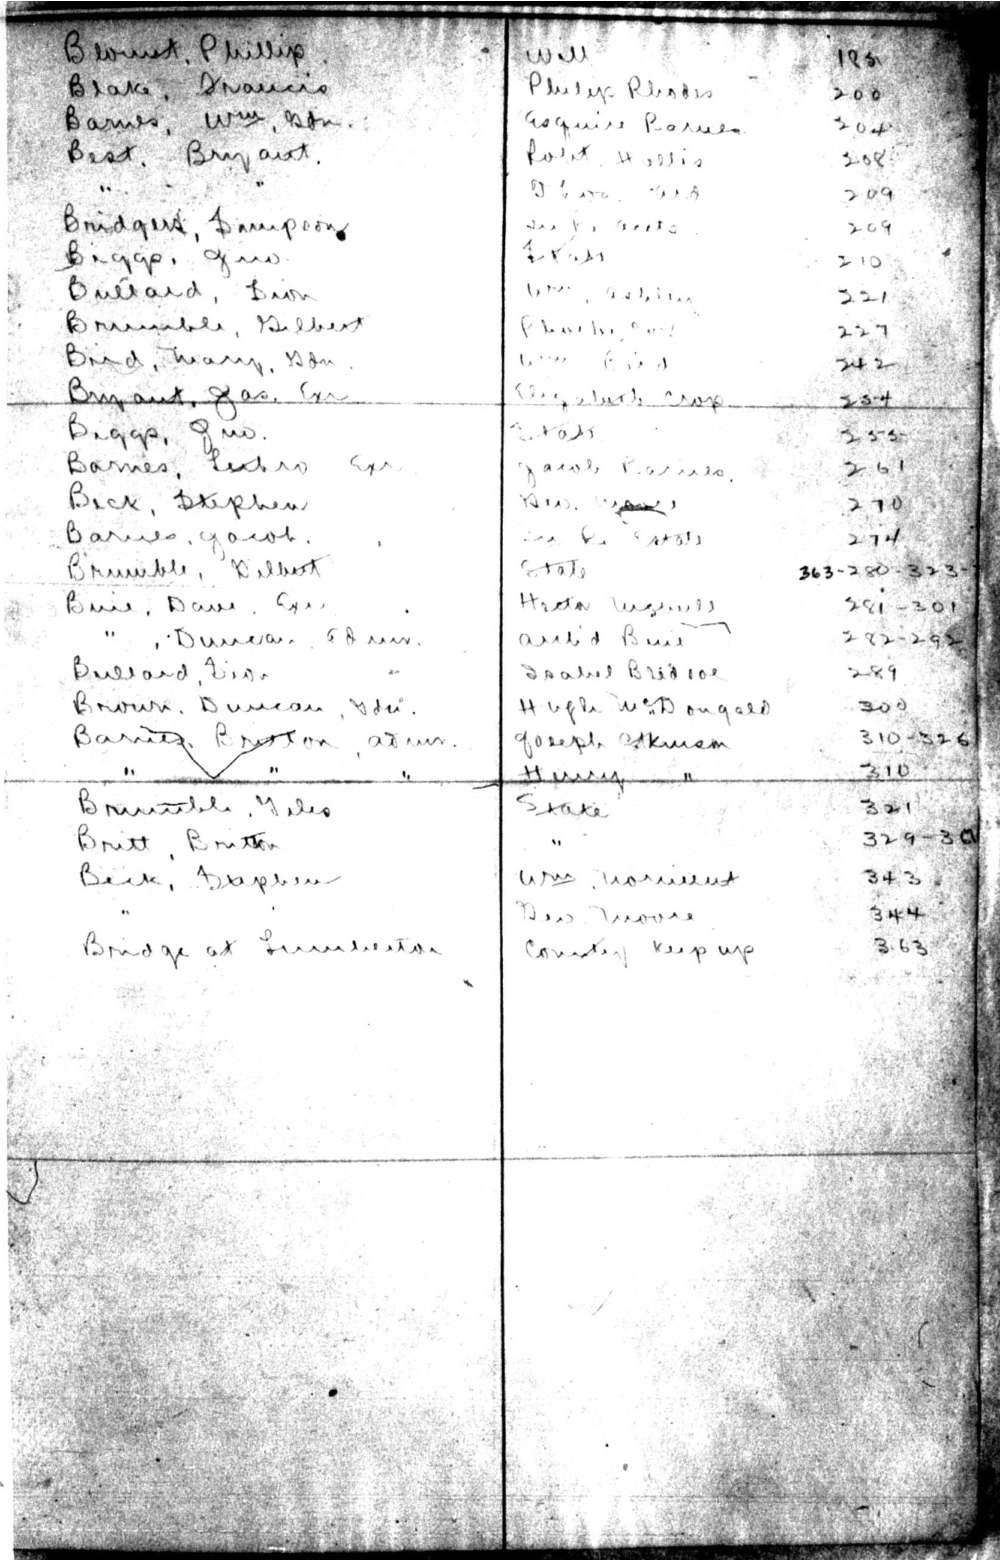 Blount, Phillip. Will 185
Blake, Francis Philip Rhodes 200
Barnes, Wm, Gdn. Esquire Barnes 204
Best, Bryant. Robt. Hollis 208
" " 209
Bridgers, Simpson 209
Biggs, Jno. State 210
Bullard, Sion Wm. 221
Brumble, Gilbert 227
Bird, Mary, Gdn. Wm Bird 242
Bryant, Jas. Exr Elizabeth Crop 254
Biggs, Jno. State 255
Barnes, Exr Jacob Barnes. 261
Beck, Stephen Geo. 270
Barnes, Jacob. Estate 274
Brumble, Gilbert State 363-280-323-
Buie, Dave, Exr Hector 281-301
" , Duncan, Admr. Arch'd Buie 282-292
Bullard, Sion " Isabel 289
Brown, Duncan, Gdn. Hugh McDongald 300
Barnes, Britton, admr. Joseph Atkinson 310-326
" " " Henry " 310
Brumble, Giles State 321
Britt, Britton " 329-
Beck, Stephen Wm. Norment 343
" Geo. Moore 344
Bridge at Lumberton County Keep up 363